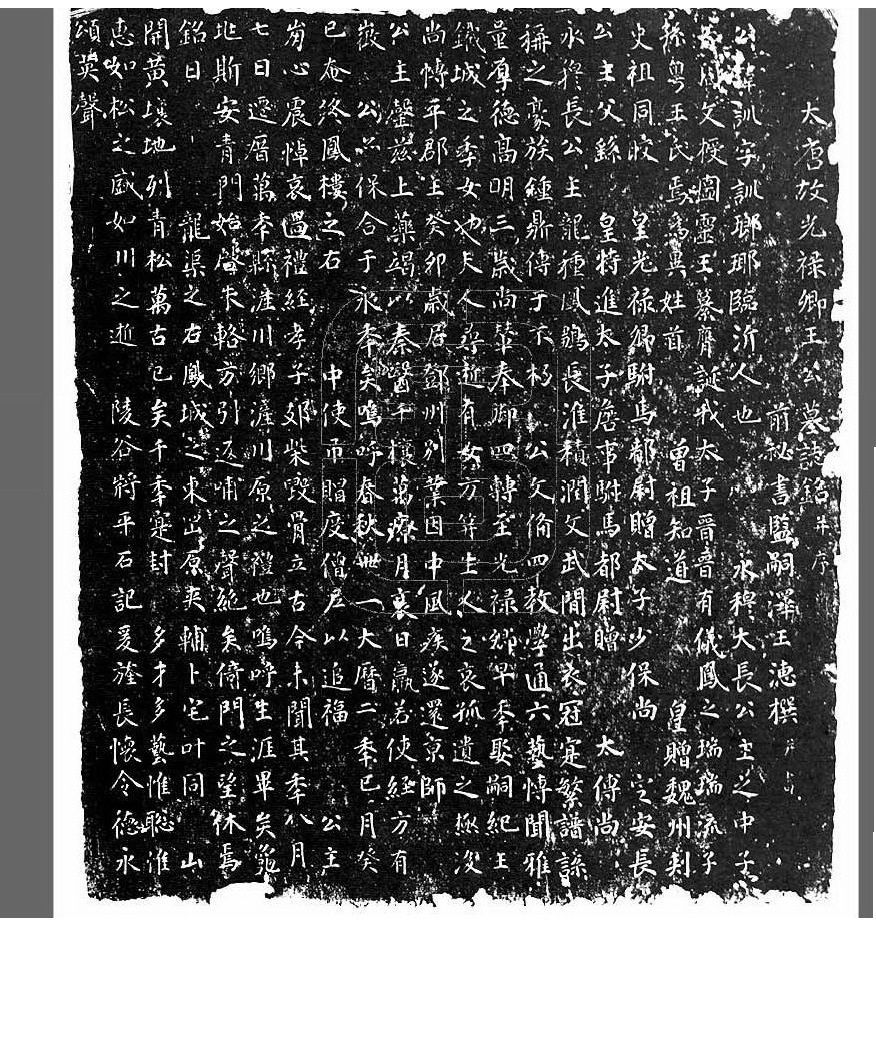 大唐故光祿卿王公墓誌銘并序
前秘書監嗣澤王潓撰
公諱訓字訓瑯耶臨沂人也 永穆大長公主之中子
文授圖靈王纂膺誕我太子晉晉有儀鳳之瑞瑞流子
孫粵王氏焉為異姓首 曾祖知道 皇贈魏州刺
史祖同皎 皇光祿卿駙馬都尉贈太子少保尚 定安長
公主父繇 皇特進太子詹事駙馬都尉贈 太傅尚
永穆長公主龍種鳳鶵長淮積潤文武間出衣冠寔繁譜諜
稱之豪族鍾鼎傳于不朽 公文備四教學通六藝博聞雅
量厚德高明三歲尚輦奉御四轉至光祿卿早年娶嗣紀王
鐵城之季女也夫人尋逝有女方笄生人之哀孤遺之極後
尚博平郡主癸卯歲居鄧州別業因中風疾遂還京師
公主罄茲上藥竭以秦醫千櫰萬療月衰日羸若使經方有
徵 公亦保合于永年矣嗚呼春秋卌一大曆二年巳月癸
巳奄終鳳樓之右 中使弔賵度僧尼以追福 公主
崩心震悼哀過禮經孝子郊柴毀骨立古今未聞其年八月
七日遷厝萬年縣滻川鄉滻川原之禮也嗚呼生涯畢矣龜
兆斯安青門始啓朱輅方引返哺之聲絕矣倚門之望休焉
銘曰 龍渠之右鳳城之東崗原夾輔卜宅叶同 山
開黃壤地列青松萬古已矣千年寔封 多才多藝惟聰惟
惠如松之盛如川之逝 陵谷將平石記爰旌長懷令德永
頌英聲